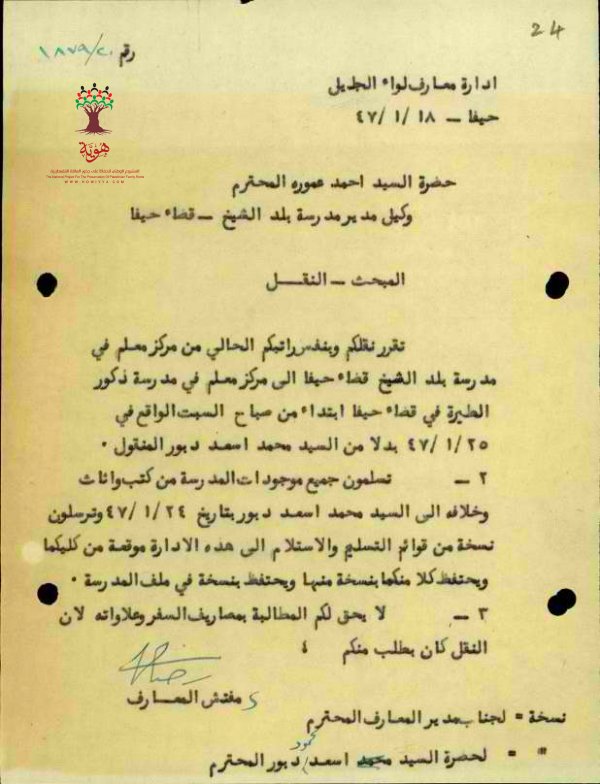 24
رقم ١٨٧٩/٤٠
هُوِيَّة
المشروع الوطني للحفاظ على جذور العائلة الفلسطينية
The National Project For The Preservation Of Palestinian Family Roots
WWW.HOWIYYA.COM
ادارة معارف لواء الجليل
حيفا – ١٨ /١ /٤٧
حضرة السيد احمد عموره المحترم
وكيل مدير مدرسة بلد الشيخ – قضاء حيفا
المبحث – النقــل
تقرر نقلكم وبنفس راتبكم الحالي من مركز معلم في
مدرسة بلد الشيخ قضاء حيفا الى مركز معلم في مدرسة ذكور
الطيرة في قضاء حيفا ابتداء من صباح السبت الواقع في
٤٧/١/٢٥ بدلا من السيد محمد اسعد دبور المنقول ٠
٢ – تسلمون جميع موجودات المدرسة من كتب واثاث
وخلافه الى السيد محمد اسعد دبور بتاريخ ٤٧/١/٢٤ وترسلون
نسخة من قوائم التسليم والاستلام الى هذه الادارة موقعة من كليكما
ويحتفظ كلا منكما بنسخة منها ويحتفظ بنسخة في ملف المدرسة ٠
٣ – لا يحق لكم المطالبة بمصاريف السفر وعلاواته لان
النقل كان بطلب منكم ؛
مفتش المعــارف
نسخة = لجناب مدير المعارف المحترم
" = لحضرة السيد محمد محمود اسعد دبور المحترم